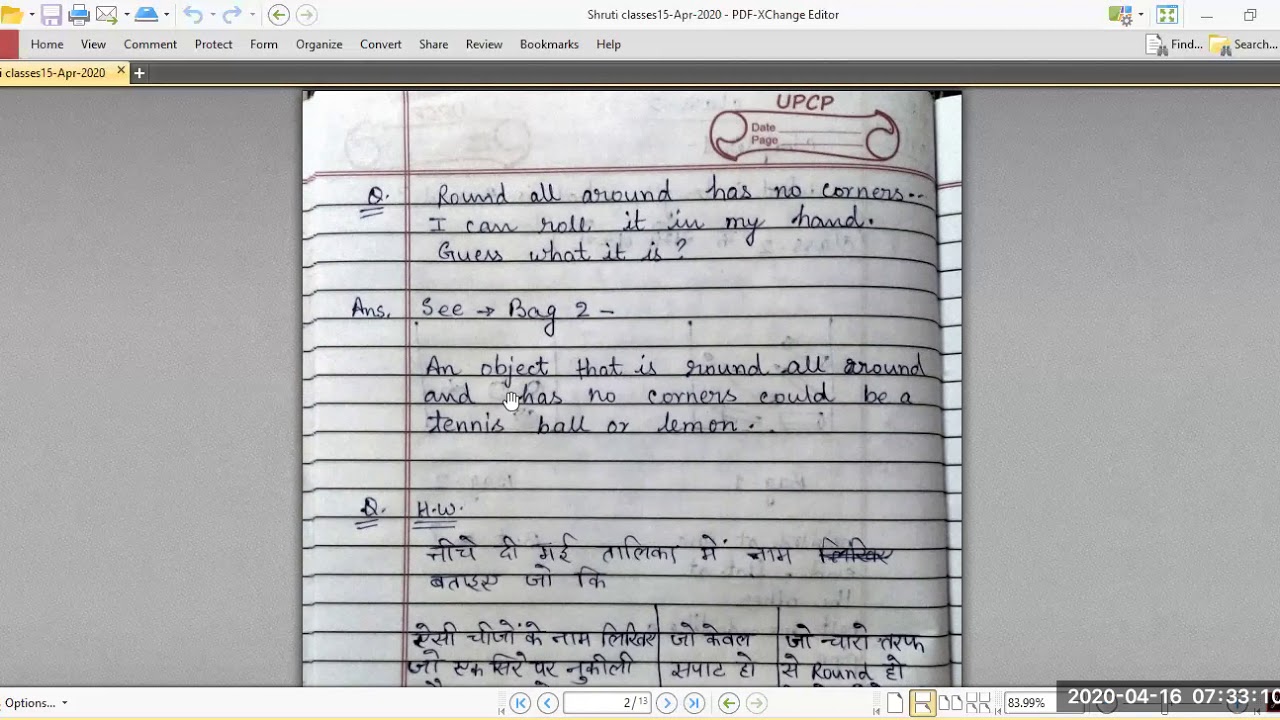 Shruti classes15-Apr-2020 - PDF-XChange Editor
Home View Comment Protect Form Organize Convert Share Review Bookmarks Help
Find... Search...
i classes15-Apr-2020
UPCP
Date
Page
Q. Round all around has no corners..
I can roll it in my hand.
Guess what it is?
Ans. See → Bag 2 -
An object that is round all around
and has no corners could be a
tennis ball or lemon.
Q. H.W.
नीचे दी गई तालिका में नाम लिखिए
बताइए जो कि
ऐसी चीजों के नाम लिखिए जो केवल जो चारो तरफ
जो एक सिरे पर नुकीली सपाट हो से Round हो
Options...
2 / 13
83.99%
2020-04-16 07:33:10